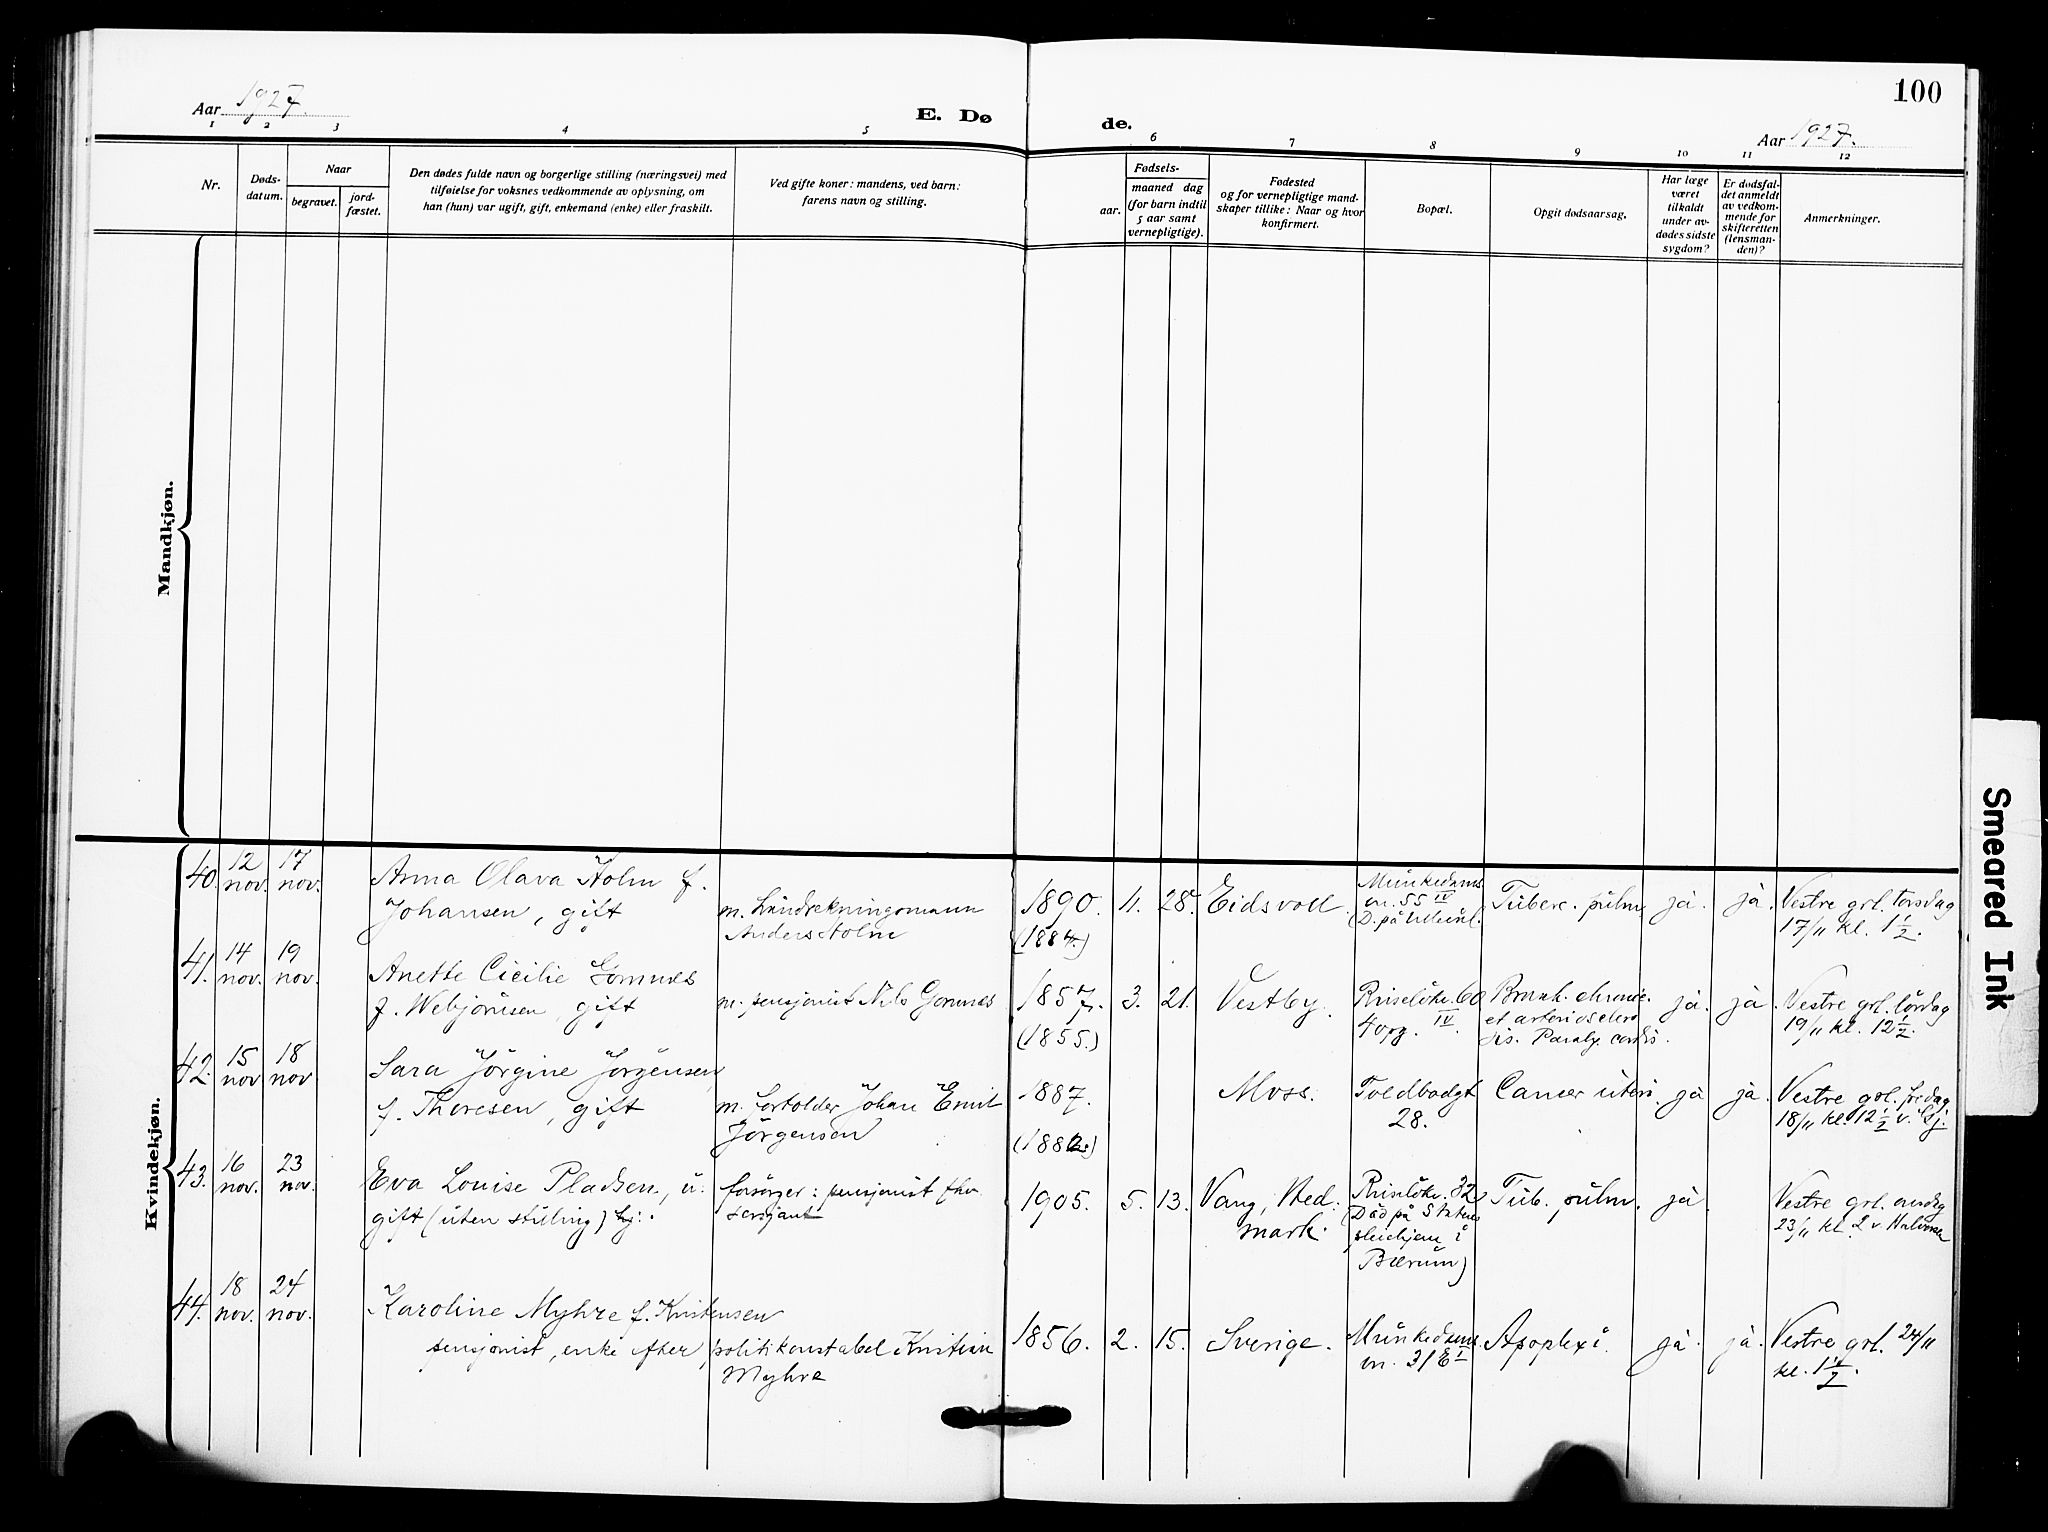 100
Aar 1927.
E. Dø
de.
Aar 1927.
1 2 3 4 5 6 7 8 9 10 11 12
Nr.
Døds-
datum.
Naar
begravet.
jord-
fæstet.
Den dødes fulde navn og borgerlige stilling (næringsvei) med
tilføielse for voksnes vedkommende av oplysning, om
han (hun) var ugift, gift, enkemand (enke) eller fraskilt.
Ved gifte koner: mandens, ved barn:
farens navn og stilling.
Fødsels-
aar.
maaned dag
(for barn indtil
5 aar samt
vernepligtige).
Fødested
og for vernepligtige mand-
skaper tillike: Naar og hvor
konfirmert.
Bopæl.
Opgit dødsaarsag.
Har læge
været
tilkaldt
under av-
dødes sidste
sygdom?
Er dødsfal-
det anmeldt
av vedkom-
mende for
skifteretten
(lensman-
den)?
Anmerkninger.
Mandkjøn.
Kvindekjøn.
40. 12 nov. 17 nov.
Anna Olava Holm f.
Johansen, gift
m. håndrekningsmann
Anders Holm
1890. 4. 28.
(1884.)
Eidsvoll.
Munkedams
vn. 55 IV
(D. på Ullevål.
Tuberc. pulm. ja. ja.
Vestre grl. torsdag
17/11 kl. 1 1/2.
41. 14 nov. 19 nov.
Anette Cicilie Gomnes
f. Webjörnsen, gift
m. pensjonist Nils Gomnes
1857. 3. 21.
(1855.)
Vestby.
Ruselökv. 60
4 opg. IV.
Bronk. chronic.
et arterioschero
sis. Paraly. cordis.
ja. ja.
Vestre grl. lördag
19/11 kl. 12 1/2.
42. 15 nov 18 nov
Sara Jörgine Jörgensen
f. Thoresen, gift
m. fortolder Johan Emil
Jörgensen
1887.
(1882.)
Moss.
Toldbodgt
28.
Cancer uteri. ja ja.
Vestre grl. fredag
18/11 kl. 12 1/2 v. Sj.
43. 16 nov. 23 nov.
Eva Louise Pladsen, u.
gift (uten stilling) hj:.
forsörger: pensjonist fhv.
sersjant
1905. 5. 13.
Vang, Hed:
mark.
Ruselökv. 32
(Död på Statens
pleiehjem i
Bærum)
Tub. pulm. ja.
Vestre grl. onsdag
23/11 kl. 2 v. Halvorsen
44. 18 nov. 24 nov.
Karoline Myhre f. Kristensen
pensjonist, enke efter politikonstabel Kristian
Myhre
1856. 2. 15.
Sverige.
Munkedams
vn. 31 E I
Apoplexi. ja. ja.
Vestre grl. 24/11
kl. 1 1/2.
Smeared Ink